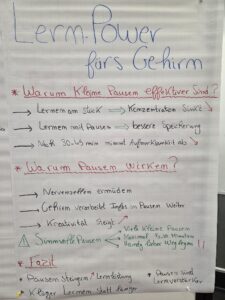 Lern-Power
fürs Gehirn
* Warum Kleine Pausen effektiver sind?
→ Lernen am Stück ⇒ Konzentration sinkt ↘
→ Lernen mit Pausen ⇒ bessere Speicherung
→ Nach 30-45 min nimmt Aufmerksamkeit ab ↘
* Warum Pausen wirken?
→ Nervenzellen ermüden
→ Gehirn verarbeitet Infos in Pausen weiter
→ Kreativität steigt ↗
⚠ Sinnvolle Pausen
Viele kleine Pausen
Maximal Minuten
Handy lieber weglegen !!
* Fazit
* Pausen steigern ↗ Lernleistung
* Pausen sind
Lernverstärker
* Klüger Lernen statt länger